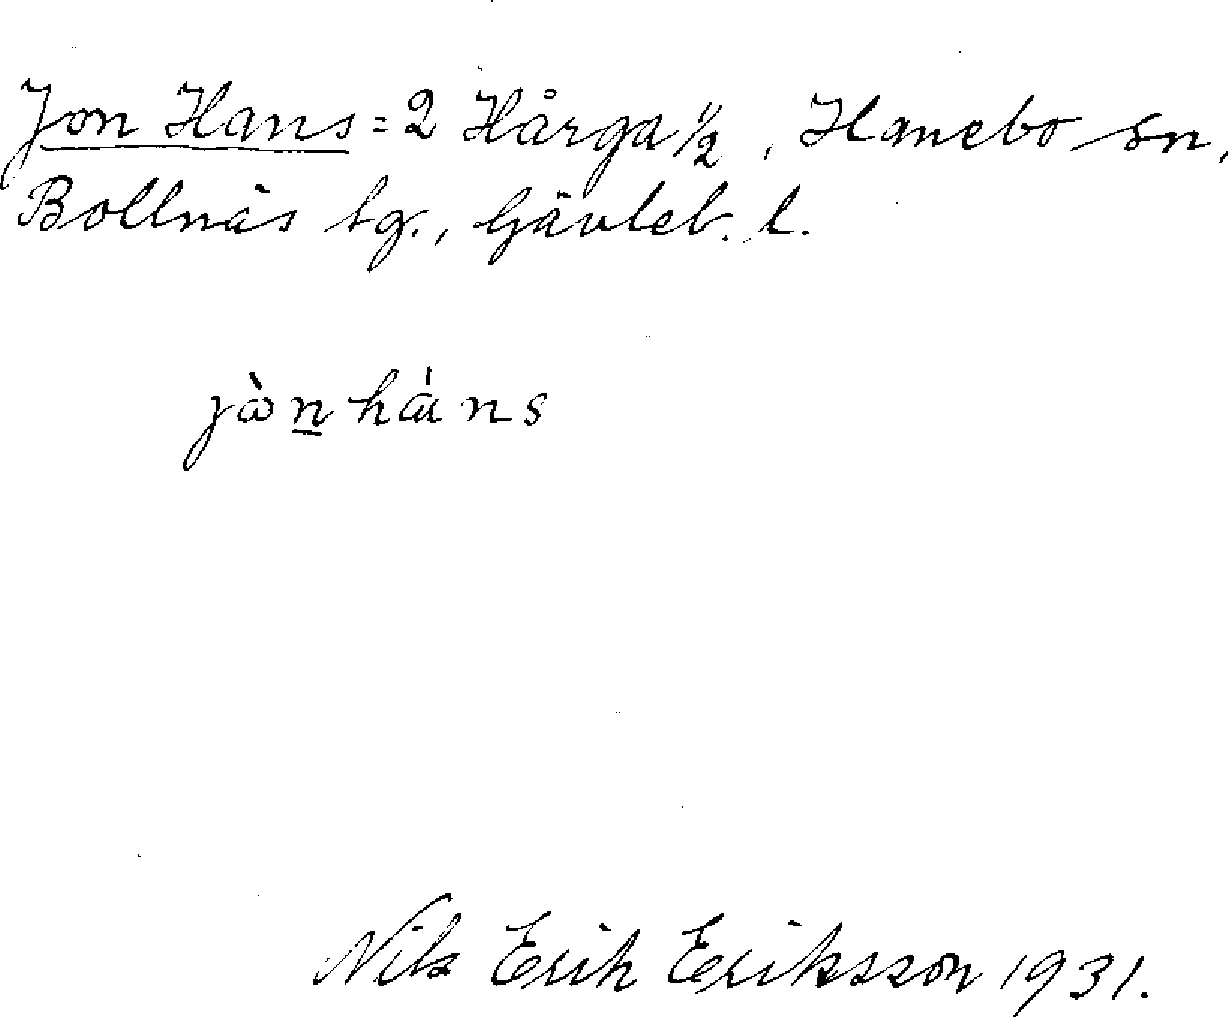 Jon Hans = 2 Hårga 1/2, Hanebo sn,
Bollnäs tg., Gävleb. l.
jὼn hάns
Nils Erik Eriksson 1931.